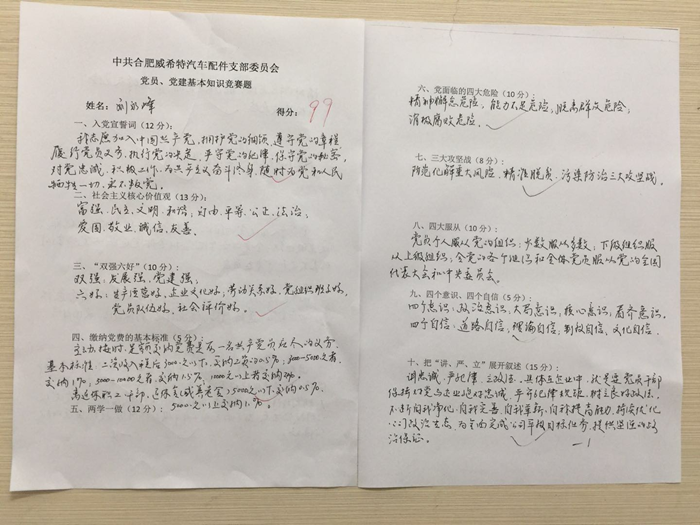 中共合肥威希特汽车配件支部委员会
党员、党建基本知识竞赛题
姓名：刘 峰
得分：99
一、入党宣誓词（12分）：
我志愿加入中国共产党，拥护党的纲领，遵守党的章程
履行党员义务，执行党的决定，严守党的纪律，保守党的秘密，
对党忠诚，积极工作，为共产主义奋斗终身，随时为党和人民
牺牲一切，永不叛党。
二、社会主义核心价值观（13分）：
富强、民主、文明、和谐；自由、平等、公正、法治、
爱国、敬业、诚信、友善。
三、“双强六好”（10分）：
双强：发展强，党建强；
六好：生产经营好，企业文化好，劳动关系好，党组织班子好，
党员队伍好，社会评价好。
四、缴纳党费的基本标准（5分）：
主动、按时、足额交纳党费是每一名共产党员应尽的义务。
基本标准：工资收入税后3000元以下，交纳工资的0.5%；3000-5000元者，
交纳1%，5000-10000元者，交纳1.5%，10000元以上者交纳2%。
离退休职工干部，退休费（或养老金）5000元以下交纳0.5%，
五、两学一做（12分）：
5000元以上交纳1%。
六、党面临的四大危险（10分）：
精神懈怠危险，能力不足危险，脱离群众危险，
消极腐败危险。
七、三大攻坚战（8分）：
防范化解重大风险、精准脱贫、污染防治三大攻坚战。
八、四大服从（10分）：
党员个人服从党的组织；少数服从多数；下级组织服
从上级组织；全党各个组织和全体党员服从党的全国
代表大会和中央委员会。
九、四个意识、四个自信（5分）：
四个意识：政治意识，大局意识，核心意识，看齐意识。
四个自信：道路自信，理论自信，制度自信，文化自信。
十、把“讲、严、立”展开叙述（15分）：
讲忠诚、严纪律、立政德。具体在企业中，就是要党员干部
保持对党与企业绝对忠诚，严守纪律规矩，树立良好政德。
不断自我净化，自我完善，自我革新，自我提高能力，持续优化
公司政治生态，为全面完成公司年度目标任务，提供坚强的政
治保证。
-1